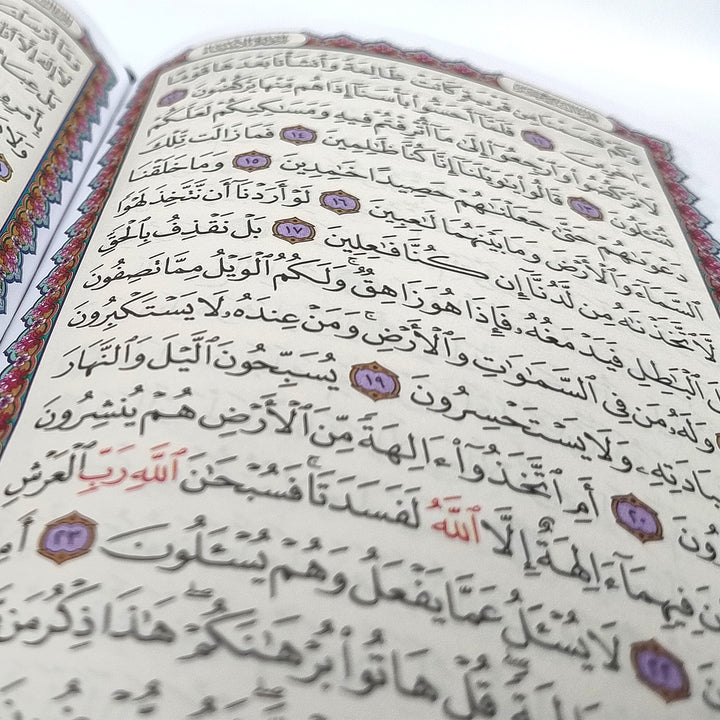 وَكَمْ قَصَمْنَا مِن قَرْيَةٍ كَانَتْ ظَالِمَةً وَأَنشَأْنَا بَعْدَهَا قَوْمًا
ءَاخَرِينَ ١١ فَلَمَّآ أَحَسُّواْ بَأْسَنَآ إِذَا هُم مِّنْهَا يَرْكُضُونَ ١٢
لَا تَرْكُضُواْ وَٱرْجِعُوٓاْ إِلَىٰ مَآ أُتْرِفْتُمْ فِيهِ وَمَسَٰكِنِكُمْ لَعَلَّكُمْ
تُسْـَٔلُونَ ١٣ قَالُواْ يَٰوَيْلَنَآ إِنَّا كُنَّا ظَٰلِمِينَ ١٤ فَمَا زَالَت تِّلْكَ
دَعْوَىٰهُمْ حَتَّىٰ جَعَلْنَٰهُمْ حَصِيدًا خَٰمِدِينَ ١٥ وَمَا خَلَقْنَا
ٱلسَّمَآءَ وَٱلْأَرْضَ وَمَا بَيْنَهُمَا لَٰعِبِينَ ١٦ لَوْ أَرَدْنَآ أَن نَّتَّخِذَ لَهْوًا
لَّٱتَّخَذْنَٰهُ مِن لَّدُنَّآ إِن كُنَّا فَٰعِلِينَ ١٧ بَلْ نَقْذِفُ بِٱلْحَقِّ
ٱلْبَٰطِلِ فَيَدْمَغُهُۥ فَإِذَا هُوَ زَاهِقٌ ۚ وَلَكُمُ ٱلْوَيْلُ مِمَّا تَصِفُونَ
وَلَهُۥ مَن فِى ٱلسَّمَٰوَٰتِ وَٱلْأَرْضِ ۚ وَمَنْ عِندَهُۥ لَا يَسْتَكْبِرُونَ
وَلَا يَسْتَحْسِرُونَ ١٩ يُسَبِّحُونَ ٱلَّيْلَ وَٱلنَّهَارَ
٢٠ أَمِ ٱتَّخَذُوٓاْ ءَالِهَةً مِّنَ ٱلْأَرْضِ هُمْ يُنشِرُونَ
فِيهِمَآ ءَالِهَةٌ إِلَّا ٱللَّهُ لَفَسَدَتَا ۚ فَسُبْحَٰنَ ٱللَّهِ رَبِّ ٱلْعَرْشِ
٢٢ لَا يُسْـَٔلُ عَمَّا يَفْعَلُ وَهُمْ يُسْـَٔلُونَ ٢٣ أَمِ
قُلْ هَاتُواْ بُرْهَٰنَكُمْ ۖ هَٰذَا ذِكْرُ مَن